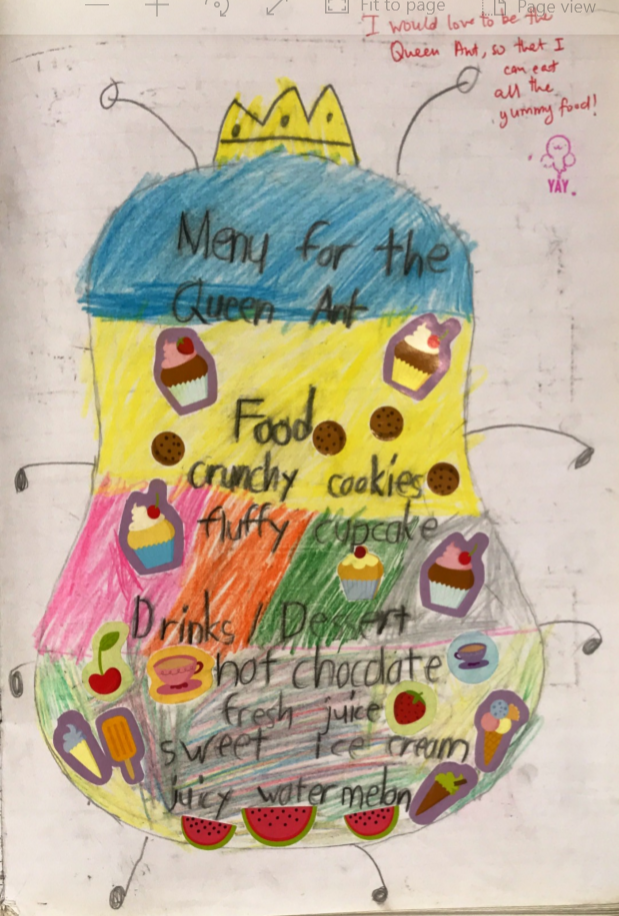 Fit to page
Page view
I would love to be the
Queen Ant, so that I
can eat
all the
yummy food!
YAY
Menu for the
Queen Ant
Food
crunchy cookies
fluffy cupcake
Drinks / Dessert
hot chocolate
fresh juice
sweet ice cream
juicy watermelon